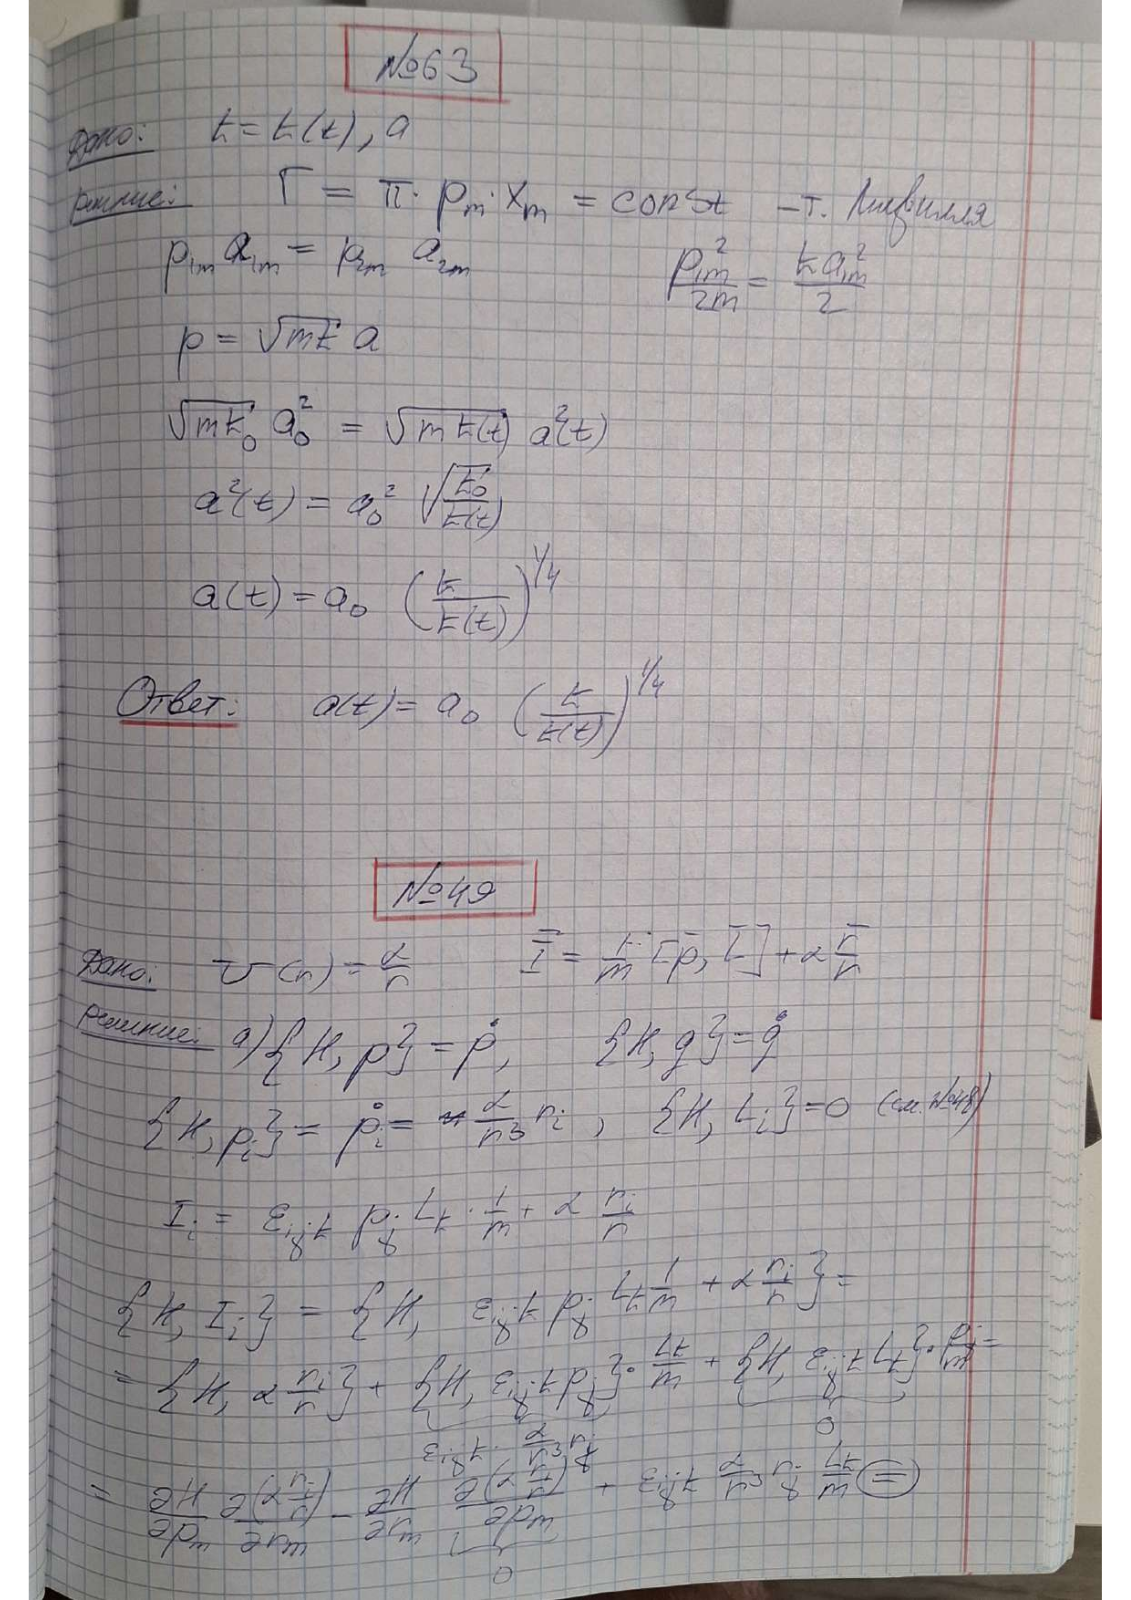 №63
Дано: k = k(t), a
Решение: Γ = π · p_m · x_m = const – т. Лиувилля
p_{1m} a_{1m} = p_{2m} a_{2m}   p_{1m}^2/2m = k a_{1m}^2/2
p = √(mk) a
√(mk_0) a_0^2 = √(m k(t)) a^2(t)
a^2(t) = a_0^2 √(k_0/k(t))
a(t) = a_0 (k/k(t))^{1/4}
Ответ: a(t) = a_0 (k/k(t))^{1/4}
№49
Дано: U(r) = α/r   I̅ = 1/m [p̅, L̅] + α r̅/r
Решение: а) {H, p} = ṗ,   {H, q} = q̇
{H, p_i} = ṗ_i = α/r^3 r_i , {H, L_i} = 0 (см. №48)
I_i = ε_{ijk} p_j L_k · 1/m + α r_i/r
{H, I_i} = {H, ε_{ijk} p_j L_k 1/m + α r_i/r} =
= {H, α r_i/r} + {H, ε_{ijk} p_j} · L_k/m + {H, ε_{ijk} L_k} · p_j/m =
ε_{ijk} · α/r^3 r_j   0
= ∂H/∂p_m ∂(α r_i/r)/∂r_m – ∂H/∂r_m ∂(α r_i/r)/∂p_m + ε_{ijk} α/r^3 r_j L_k/m =
0